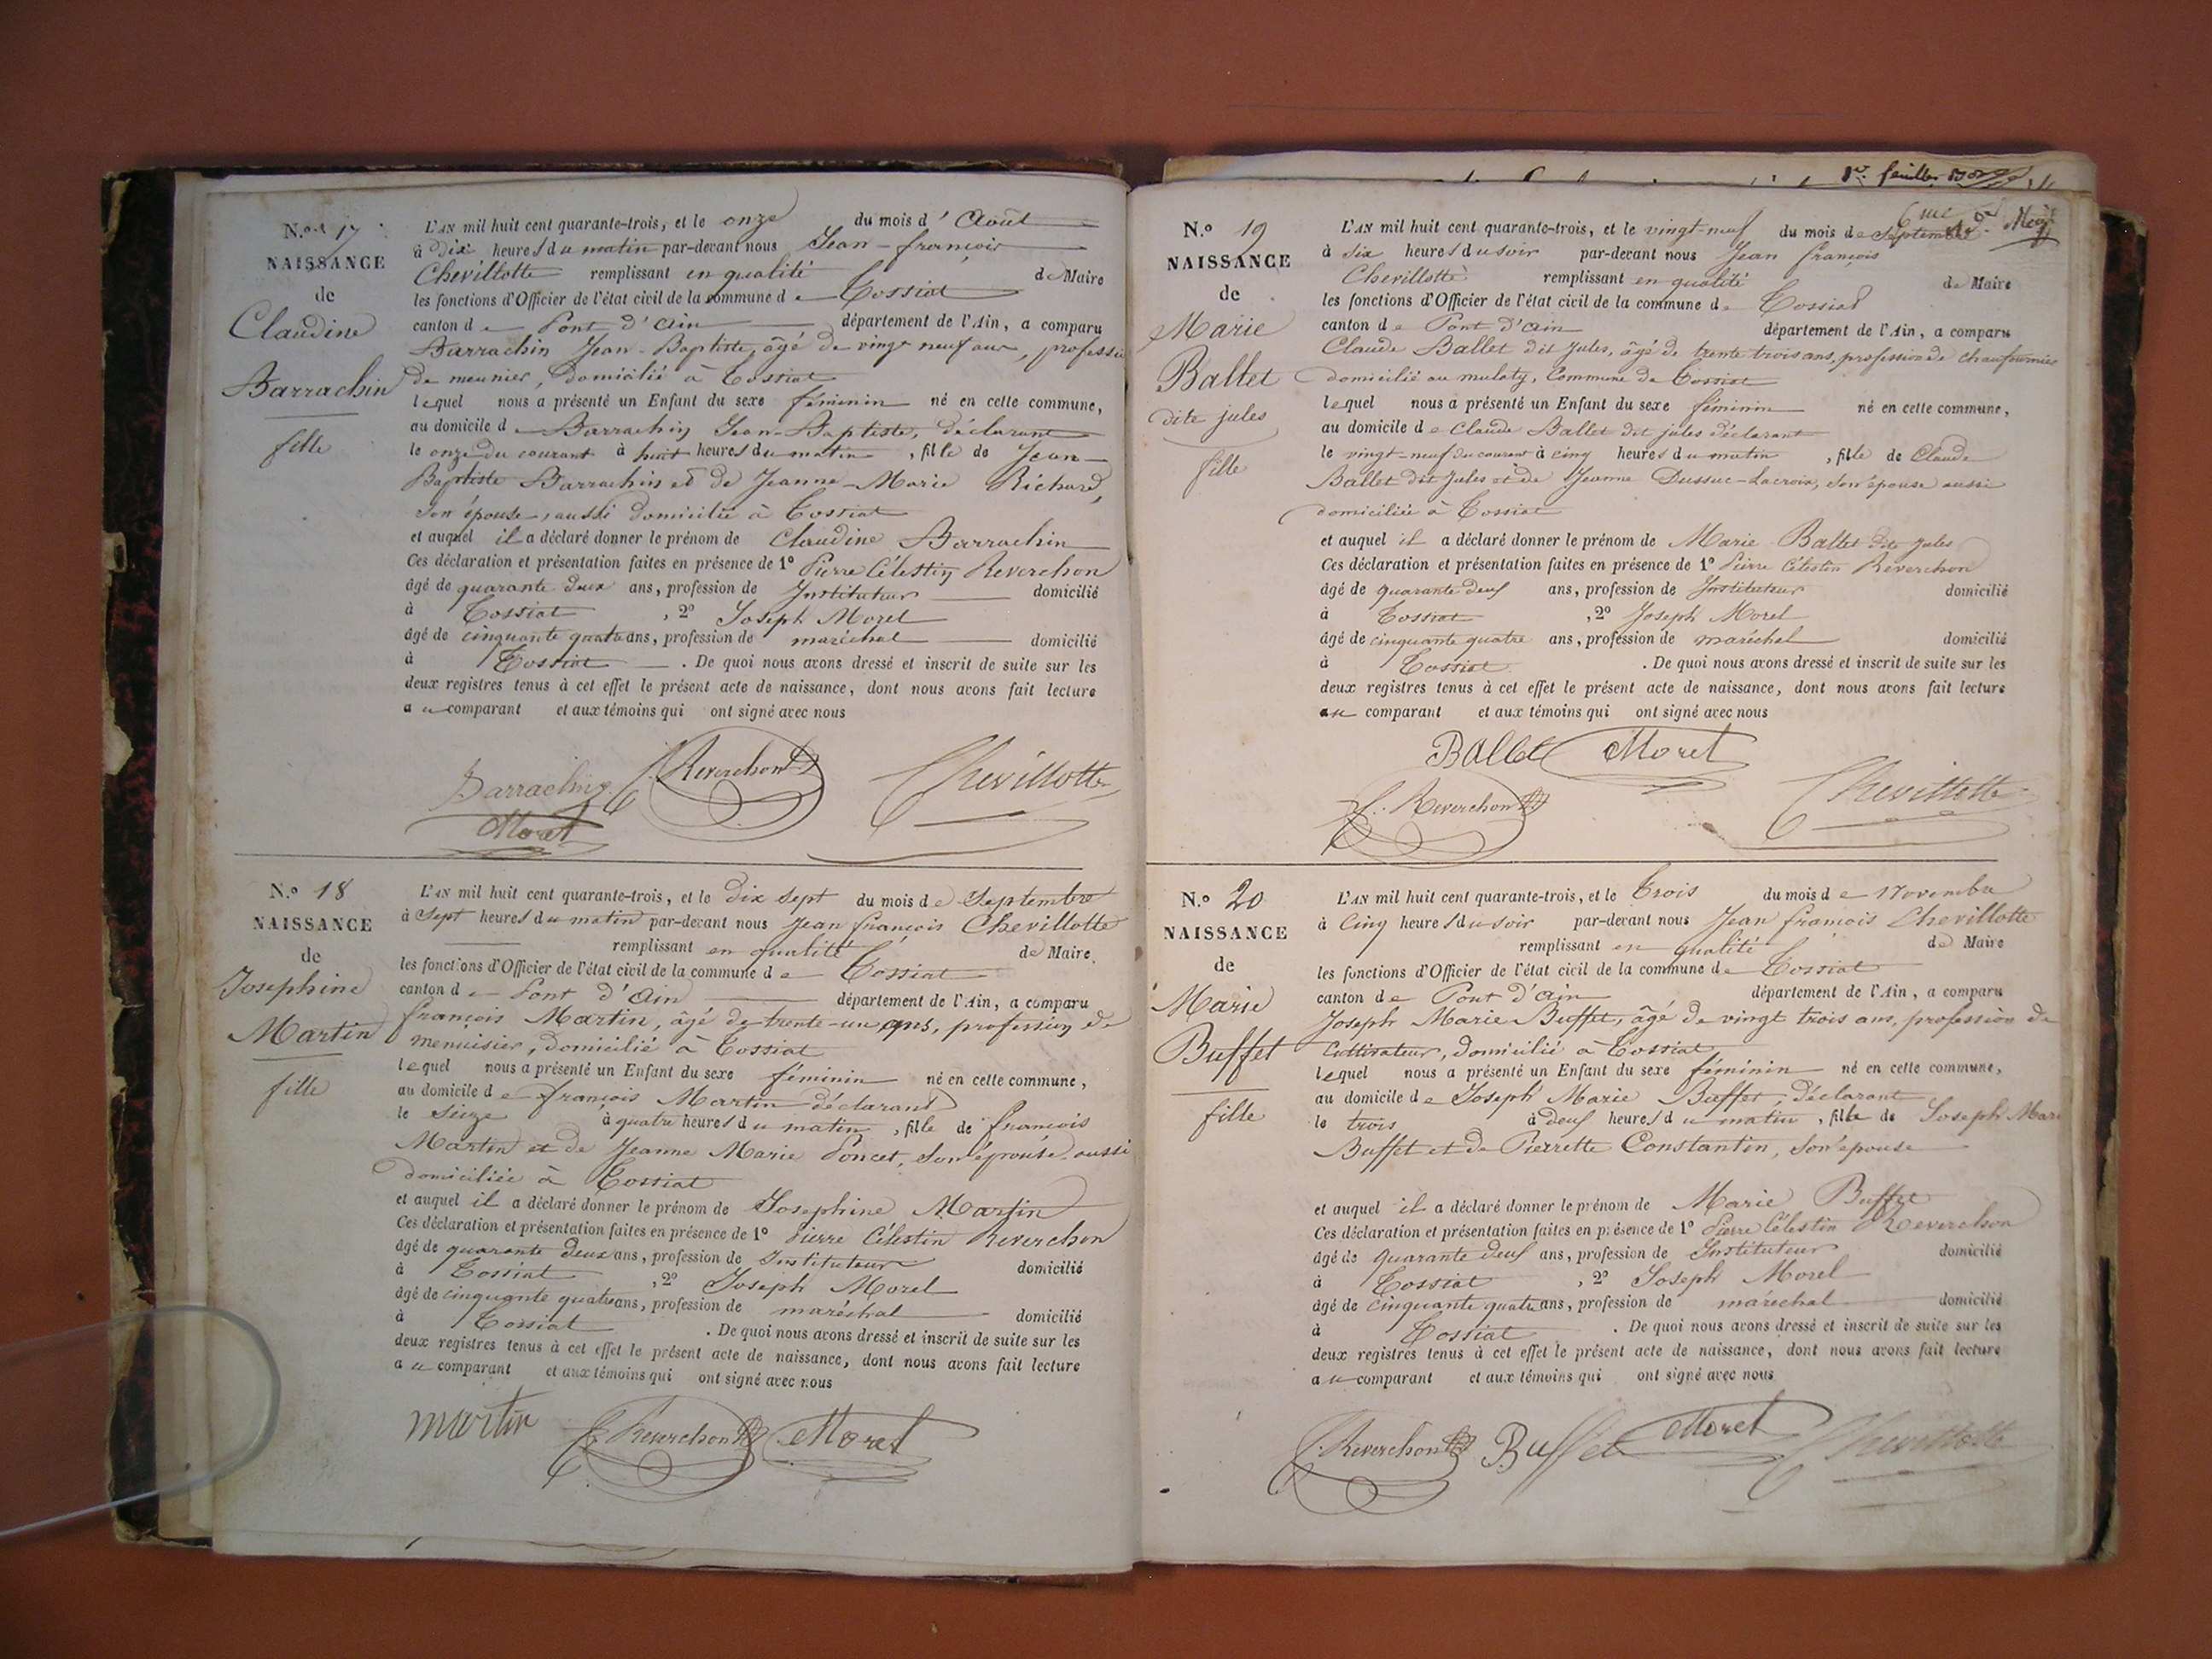 N.º 17
NAISSANCE
de
Claudine
Barrachin
fille
L'AN mil huit cent quarante-trois, et le onze du mois d'Août
à Dix heures du matin par-devant nous Jean-françois
Chevillotte remplissant en qualité de Maire
les fonctions d'Officier de l'état civil de la commune de Tossiat
canton de Pont d'ain département de l'Ain, a comparu
Barrachin Jean-Baptiste, âgé de vingt neuf ans, professio
de meunier, domicilié à Tossiat
lequel nous a présenté un Enfant du sexe féminin né en cette commune,
au domicile de Barrachin Jean-Baptiste, déclarant
le onze du courant à huit heures du matin, fille de Jean-
Baptiste Barrachin et de Jeanne-Marie Richard,
son épouse, aussi domiciliée à Tossiat
et auquel il a déclaré donner le prénom de Claudine Barrachin
Ces déclaration et présentation faites en présence de 1º Pierre Célestin Reverchon
âgé de quarante deux ans, profession de Instituteur domicilié
à Tossiat, 2º Joseph Morel
âgé de cinquante quatre ans, profession de maréchal domicilié
à Tossiat. De quoi nous avons dressé et inscrit de suite sur les
deux registres tenus à cet effet le présent acte de naissance, dont nous avons fait lecture
au comparant et aux témoins qui ont signé avec nous
Barrachin Reverchon Chevillotte
Morel
N.º 18
NAISSANCE
de
Josephine
Martin
fille
L'AN mil huit cent quarante-trois, et le Dix Sept du mois de Septembre
à Sept heures du matin par-devant nous Jean françois Chevillotte
remplissant en qualité de Maire.
les fonctions d'Officier de l'état civil de la commune de Tossiat
canton de Pont d'Ain département de l'Ain, a comparu
françois Martin, âgé de trente-un ans, profession de
menuisier, domicilié à Tossiat
lequel nous a présenté un Enfant du sexe féminin né en cette commune,
au domicile de françois Martin déclarant
le seize à quatre heures du matin, fille de françois
Martin et de Jeanne Marie Poncet, son épouse aussi
domiciliée à Tossiat
et auquel il a déclaré donner le prénom de Josephine Martin
Ces déclaration et présentation faites en présence de 1º Pierre Célestin Reverchon
âgé de quarante deux ans, profession de Instituteur domicilié
à Tossiat, 2º Joseph Morel
âgé de cinquante quatre ans, profession de maréchal domicilié
à Tossiat. De quoi nous avons dressé et inscrit de suite sur les
deux registres tenus à cet effet le présent acte de naissance, dont nous avons fait lecture
au comparant et aux témoins qui ont signé avec nous
martin Reverchon Morel
feuille
6me
N.º 19
NAISSANCE
de
Marie
Ballet
dite jules
fille
L'AN mil huit cent quarante-trois, et le vingt-neuf du mois de Septembre
à six heures du soir par-devant nous Jean françois
Chevillotte remplissant en qualité de Maire
les fonctions d'Officier de l'état civil de la commune de Tossiat
canton de Pont d'ain département de l'Ain, a comparu
Claude Ballet dit Jules, âgé de trente trois ans, profession de chaufournier
domicilié au mulaty, Commune de Tossiat
lequel nous a présenté un Enfant du sexe féminin né en cette commune,
au domicile de Claude Ballet dit jules déclarant
le vingt-neuf du courant à cinq heures du matin, fille de Claude
Ballet dit Jules et de Jeanne Dussuc-Lacroix, son épouse aussi
domiciliée à Tossiat
et auquel il a déclaré donner le prénom de Marie Ballet dite Jules
Ces déclaration et présentation faites en présence de 1º Pierre Célestin Reverchon
âgé de quarante deux ans, profession de Instituteur domicilié
à Tossiat, 2º Joseph Morel
âgé de cinquante quatre ans, profession de maréchal domicilié
à Tossiat. De quoi nous avons dressé et inscrit de suite sur les
deux registres tenus à cet effet le présent acte de naissance, dont nous avons fait lecture
au comparant et aux témoins qui ont signé avec nous
Ballet Morel
Reverchon Chevillotte
N.º 20
NAISSANCE
de
Marie
Buffet
fille
L'AN mil huit cent quarante-trois, et le Trois du mois de Novembre
à Cinq heures du soir par-devant nous Jean françois Chevillotte
remplissant en qualité de Maire
les fonctions d'Officier de l'état civil de la commune de Tossiat
canton de Pont d'ain département de l'Ain, a comparu
Joseph Marie Buffet, âgé de vingt trois ans, profession de
Cultivateur, domicilié à Tossiat
lequel nous a présenté un Enfant du sexe féminin né en cette commune,
au domicile de Joseph Marie Buffet, déclarant
le trois à deux heures du matin, fille de Joseph Mari
Buffet et de Pierrette Constantin, son épouse
et auquel il a déclaré donner le prénom de Marie Buffet
Ces déclaration et présentation faites en présence de 1º Pierre Célestin Reverchon
âgé de quarante deux ans, profession de Instituteur domicilié
à Tossiat, 2º Joseph Morel
âgé de cinquante quatre ans, profession de maréchal domicilié
à Tossiat. De quoi nous avons dressé et inscrit de suite sur les
deux registres tenus à cet effet le présent acte de naissance, dont nous avons fait lecture
au comparant et aux témoins qui ont signé avec nous
Reverchon Buffet Morel Chevillotte